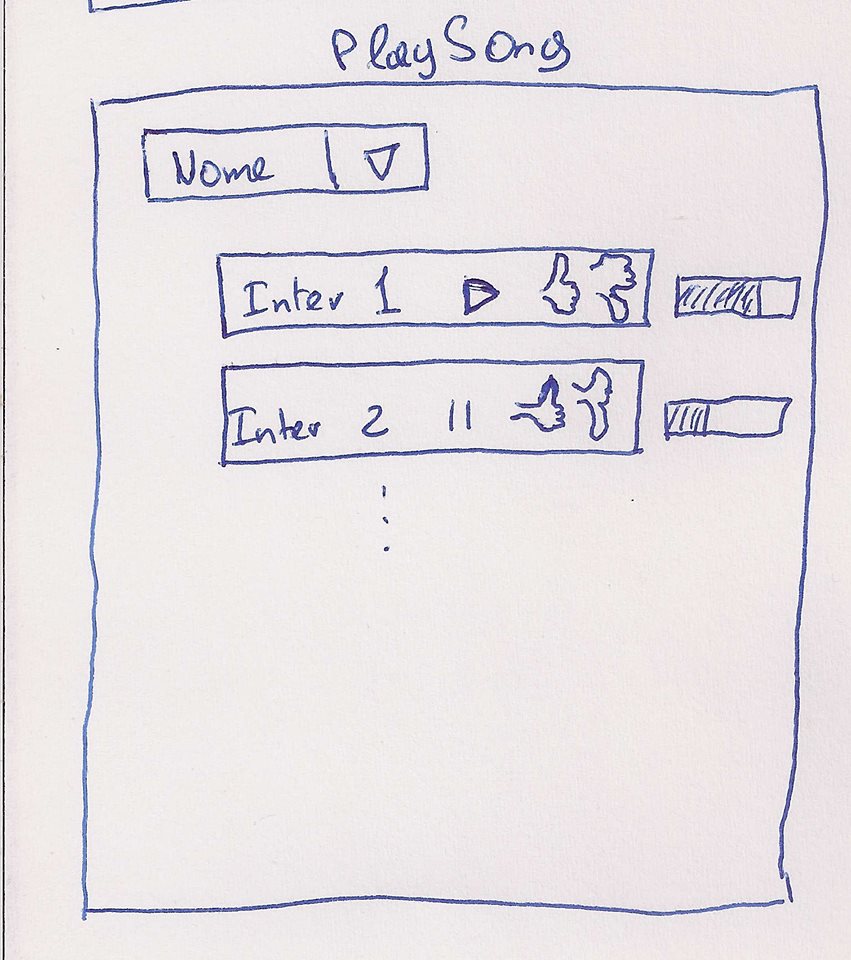 PlaySong
Nome
Inter 1
Inter 2